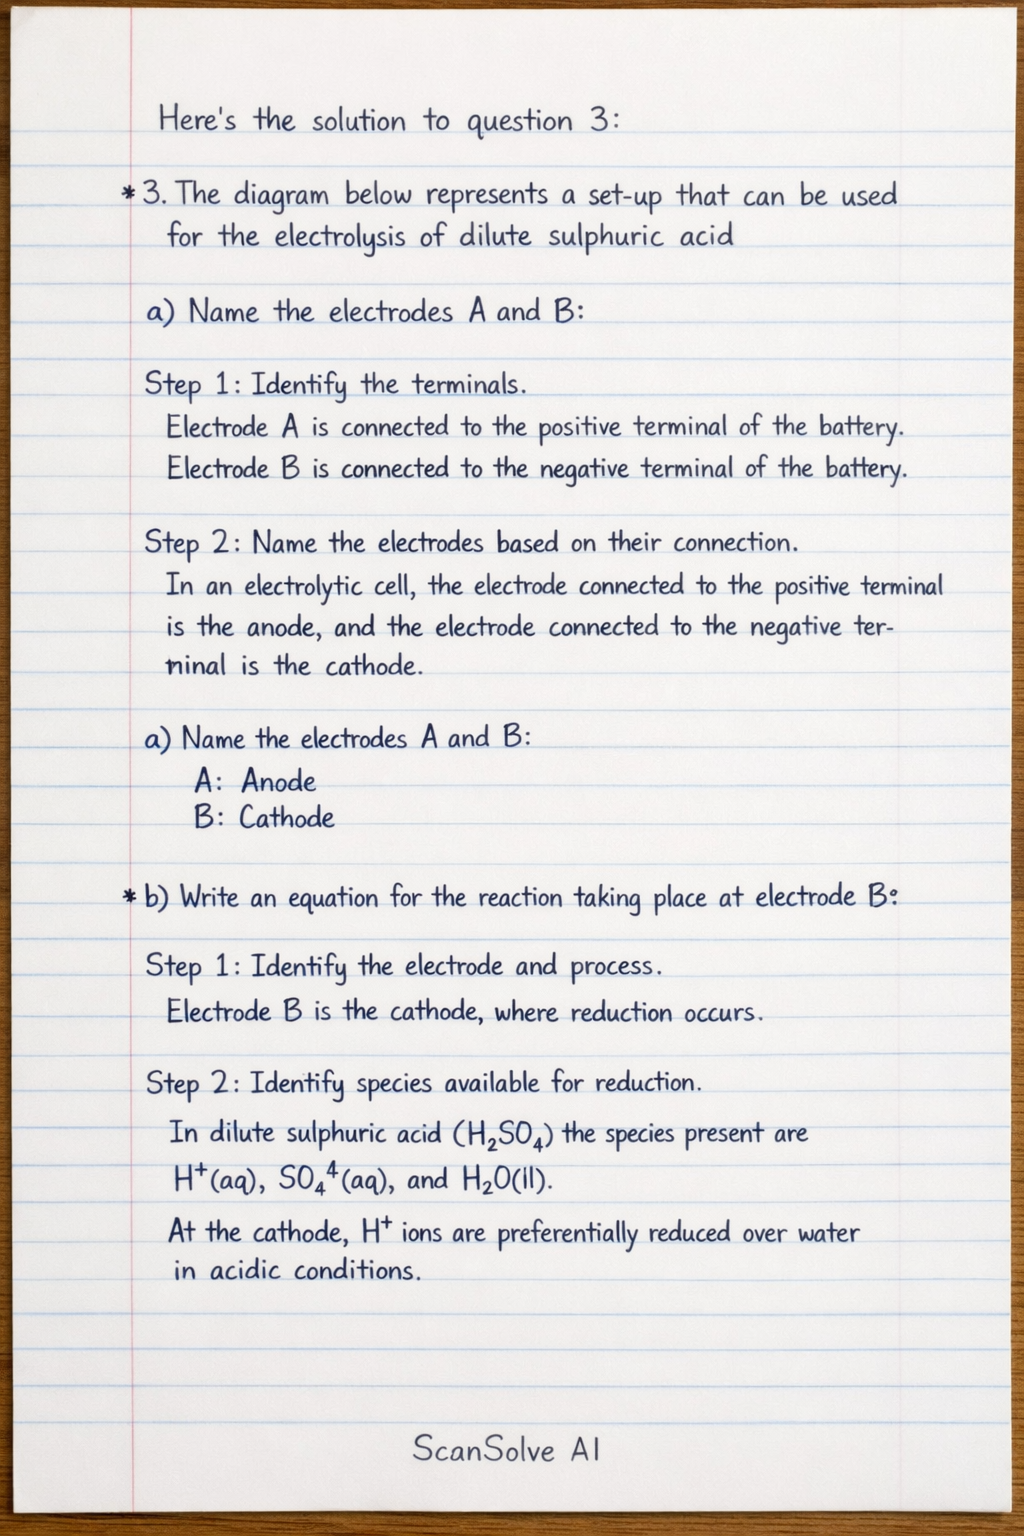 Here's the solution to question 3:
* 3. The diagram below represents a set-up that can be used
for the electrolysis of dilute sulphuric acid
a) Name the electrodes A and B:
Step 1: Identify the terminals.
Electrode A is connected to the positive terminal of the battery.
Electrode B is connected to the negative terminal of the battery.
Step 2: Name the electrodes based on their connection.
In an electrolytic cell, the electrode connected to the positive terminal
is the anode, and the electrode connected to the negative ter-
minal is the cathode.
a) Name the electrodes A and B:
A: Anode
B: Cathode
* b) Write an equation for the reaction taking place at electrode B:
Step 1: Identify the electrode and process.
Electrode B is the cathode, where reduction occurs.
Step 2: Identify species available for reduction.
In dilute sulphuric acid (H₂SO₄) the species present are
H⁺(aq), SO₄⁴(aq), and H₂O(il).
At the cathode, H⁺ ions are preferentially reduced over water
in acidic conditions.
ScanSolve AI